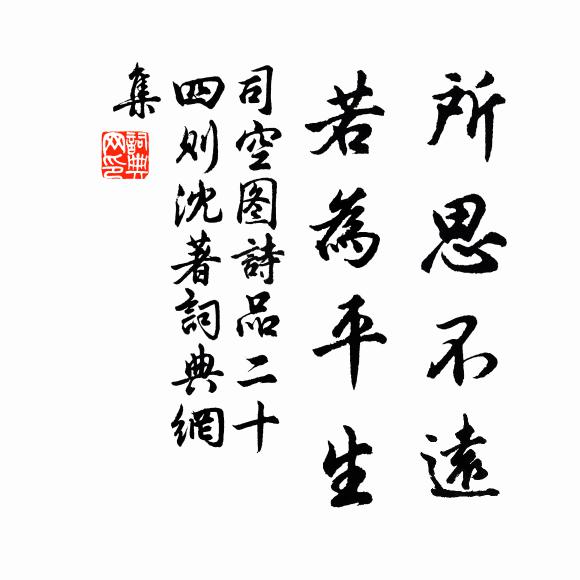 所思不遠
若為平生
司空图詩品二十
四则沈著詞典網
集
詞典
网印